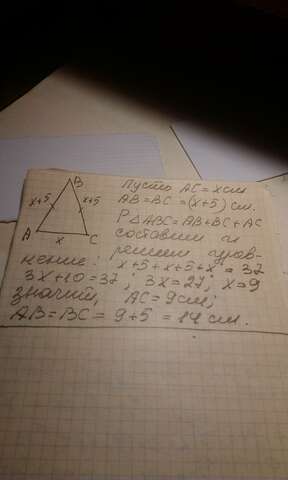 B
x+5
x+5
A
x
C
Пусть AC = x см
AB = BC = (x+5) см.
P△ABC = AB+BC+AC
составим и
решим урав-
нение: x+5+x+5+x = 37
3x+10=37; 3x=27; x=9
значит, AC = 9см;
AB = BC = 9+5 = 14 см.